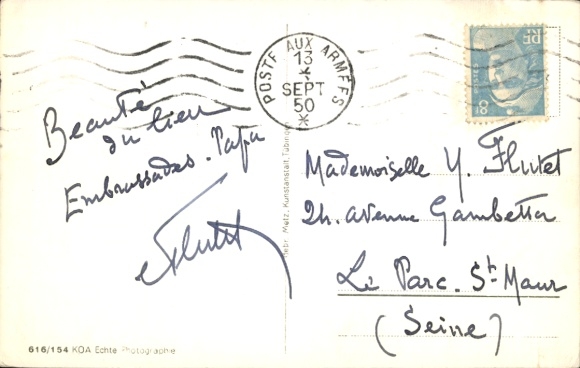 POSTE AUX ARMÉES
13
SEPT
50
RF
8F
Beauté
du lieu
Embrassades. Papa
Flutet
Mademoiselle Y. Flutet
24. avenue Gambetta
Le Parc. St-Maur
(Seine)
Gebr. Metz, Kunstanstalt, Tübingen
616/154 KOA Echte Photographie